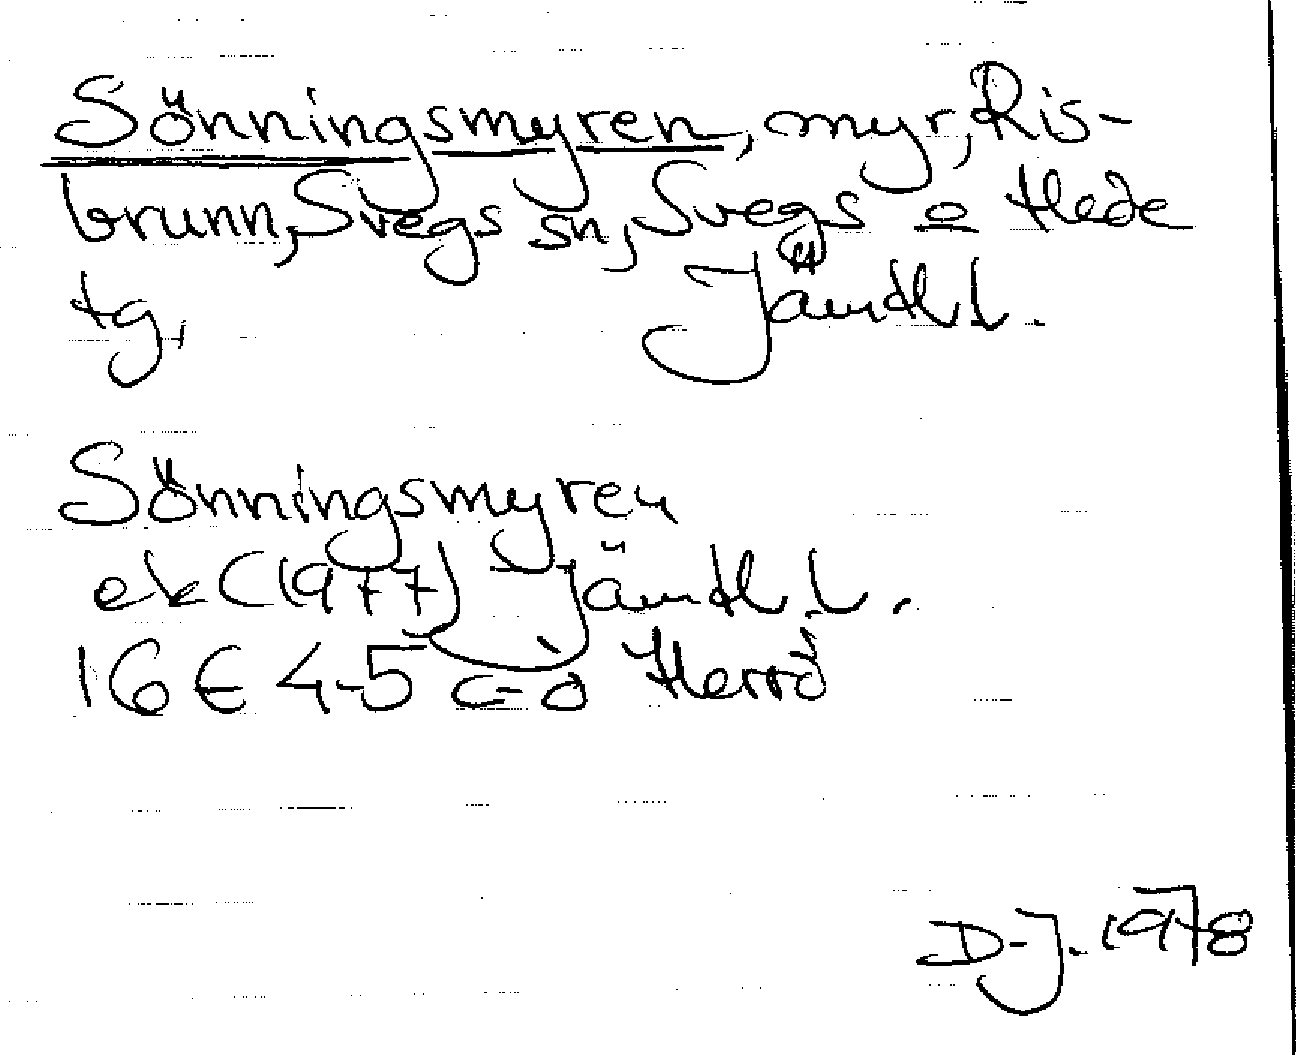 Sönningsmyren, myr, Ris-
brunn, Svegs sn, Svegs o Hede
tg. Jämtl l.
Sönningsmyren
ek (1977) Jämtl. l.
16 E 4-5 c-d Herrö
D-J. 1978